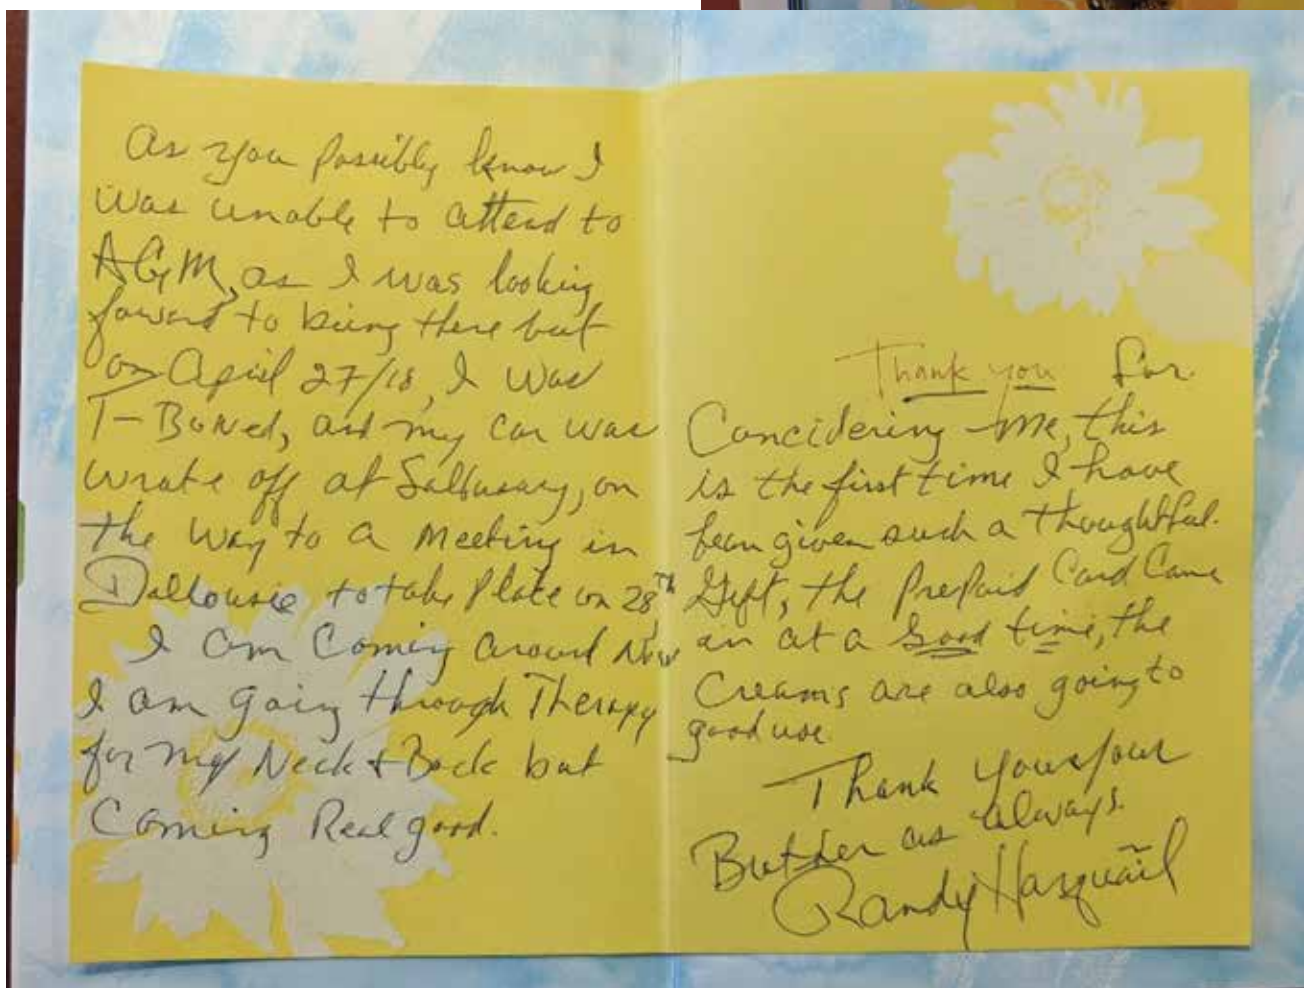 As you possibly know I
was unable to attend to
AGM, as I was looking
forward to being there but
on April 27/18, I was
T-Boned, and my car was
wrote off at Salbusary, on
the way to a Meeting in
Dalhousie to take Place on 28th
I am Coming around Now
I am going through Therapy
for my Neck + Back but
Coming Real good.
Thank you for
Concidering me, this
is the first time I have
bean given such a thoughtful
Gift, the PrePaid Card Came
an at a Good time, the
Creams are also going to
good use.
Thank you your
as always.
Randy Hasquail